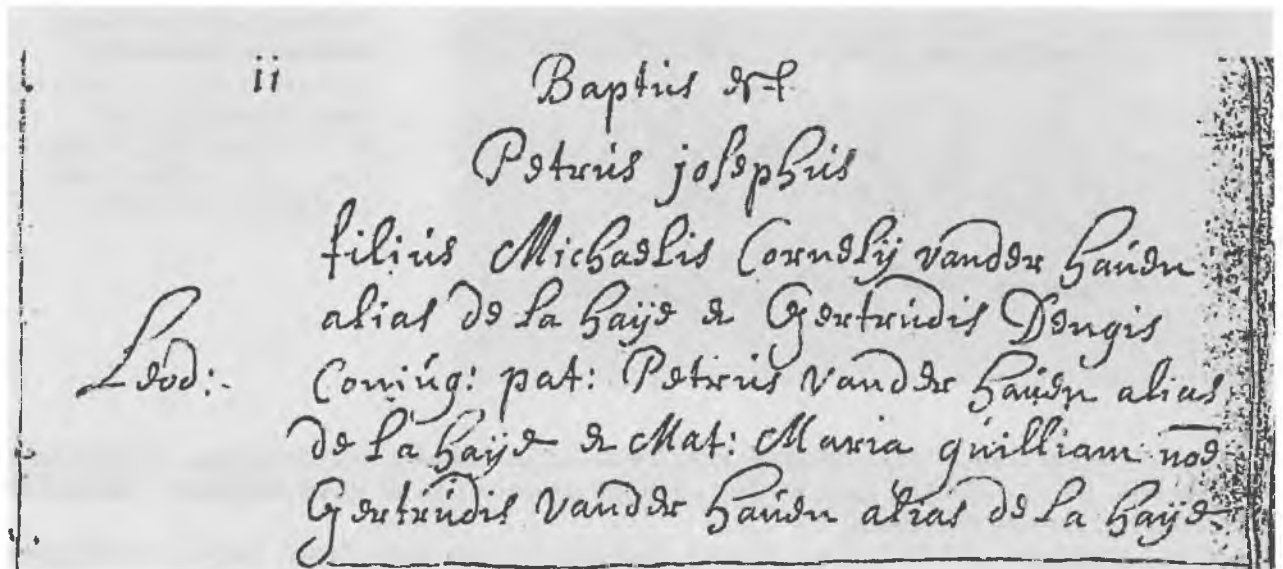 ii Baptus est
Petrus josephus
filius Michaelis Cornelij vander hauen
alias de la haije & Gertrudis Dengis
Leod: Coniug: pat: Petrus vander hauen alias
de la haije & Mat: Maria guilliam noe
Gertrudis vander hauen alias de la haije